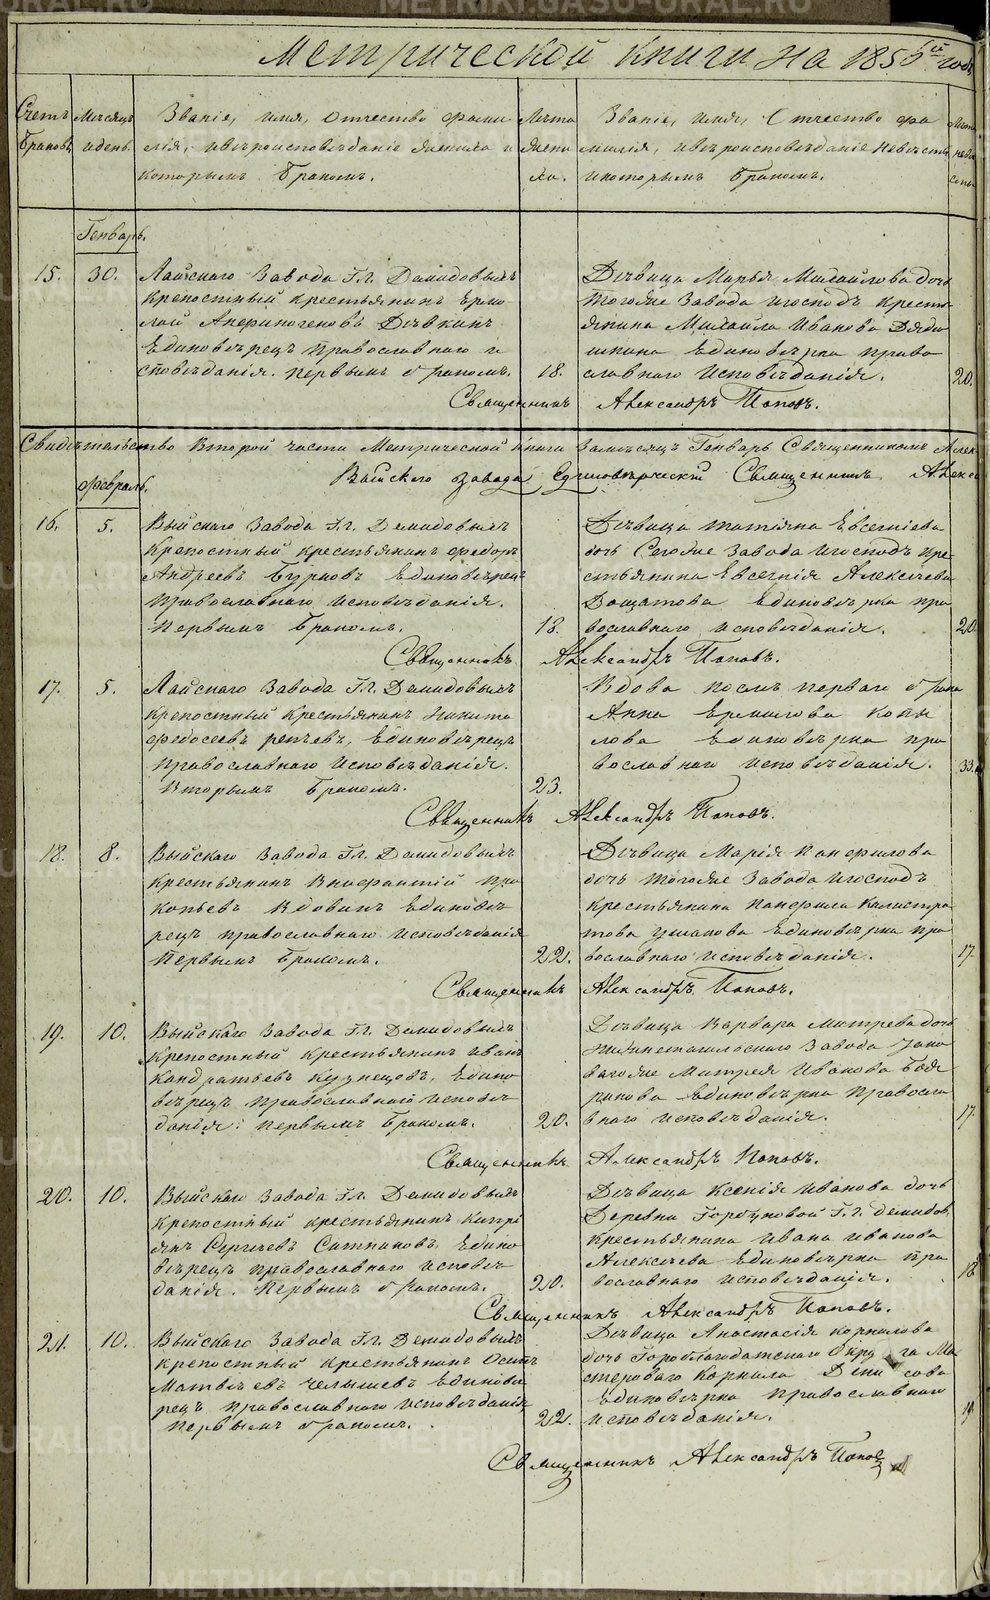 Метрической книги на 1855й годъ
Счетъ Браковъ.
Мѣсяцъ и день.
Званіе, имя, отчество фами
лія, и вѣроисповѣданіе жениха и
которымъ бракомъ.
Лѣта жени
ха.
Званіе, имя, Отчество фа
милія, и вѣроисповѣданіе невѣсты,
и которымъ бракомъ.
Лѣта невѣ
сты
Генварь.
15. 30.
Лайскаго Завода Гг. Демидовыхъ
крепостный крестьянинъ Ермо
лай Анфиногеновъ Дѣвкинъ
Единовѣрецъ православнаго и
сповѣданія. первымъ бракомъ. 18.
Дѣвица Марья Михайлова дочь
тогоже Завода и господъ кресть
янина Михайла Иванова Дяди
шкина Единовѣрка право
славнаго исповѣданія. 20.
Священникъ Александръ Поповъ.
Свидѣтельство второй части Метрической книги За мѣсяцъ Генварь Священникомъ Алек
Выйскаго завода Единовѣрческій Священникъ Алекса
Февраль.
16. 5.
Выйскаго Завода Гг. Демидовыхъ
крепостный крестьянинъ Федоръ
Андреевъ Бурковъ Единовѣрецъ
православнаго исповѣданія.
первымъ бракомъ. 18.
Дѣвица татіяна Евсегніева
дочь Сегоже Завода и господъ кре
стьянина Евсегнія Алексѣева
Дощатова Единовѣрка пра
вославнаго исповѣданія. 20.
Священникъ Александръ Поповъ.
17. 5.
Лайскаго Завода Гг. Демидовыхъ
крепостный крестьянинъ Никита
Федосеевъ репьевъ, Единовѣрецъ
православнаго исповѣданія.
вторымъ бракомъ. 23.
Вдова послѣ перваго брака
Анна Ермилова копы
лова Единовѣрка пра
вославнаго исповѣданія. 33.
Священникъ Александръ Поповъ.
18. 8.
Выйскаго Завода Гг. Демидовыхъ
крестьянинъ Внифантій про
копьевъ Вдовинъ Единовѣ
рецъ православнаго исповѣданія
первымъ бракомъ. 22.
Дѣвица Марія Панфилова
дочь тогоже Завода и господъ
крестьянина Панфила калистра
това ушакова Единовѣрка пра
вославнаго исповѣданія. 17.
Священникъ Александръ Поповъ.
19. 10.
Выйскаго Завода Гг. Демидовыхъ
крепостный крестьянинъ иванъ
кандратьевъ кузнецовъ, Едино
вѣрецъ православнаго исповѣ
данія: первымъ бракомъ. 20.
Дѣвица Варвара митрева дочь
Нижнетагильскаго Завода
Митрея Иванова
Единовѣрка православ
внаго исповѣданія. 17.
Священникъ Александръ Поповъ.
20. 10.
Выйскаго Завода Гг. Демидовыхъ
крепостный крестьянинъ Кипрі
янъ Сергѣевъ Ситниковъ, Едино
вѣрецъ православнаго исповѣ
данія. Первымъ бракомъ. 20.
Дѣвица Ксенія Иванова дочь
Деревни Горбуновой Гг. демидов.
крестьянина ивана иванова
Алексѣева Единовѣрка пра
вославнаго исповѣданія. 18.
Священникъ Александръ Поповъ.
21. 10.
Выйскаго Завода Гг. Демидовыхъ
крепостный крестьянинъ Осипъ
Матвѣевъ Челышевъ Единовѣ
рецъ православнаго исповѣданія
первымъ бракомъ. 22.
Дѣвица Анастасія корнилова
дочь Гороблагодатскаго Округа Ма
стероваго корнила Денисова
Единовѣрка православнаго
исповѣданія. 19.
Священникъ Александръ Поповъ
METRIKI.GASO-URAL.RU